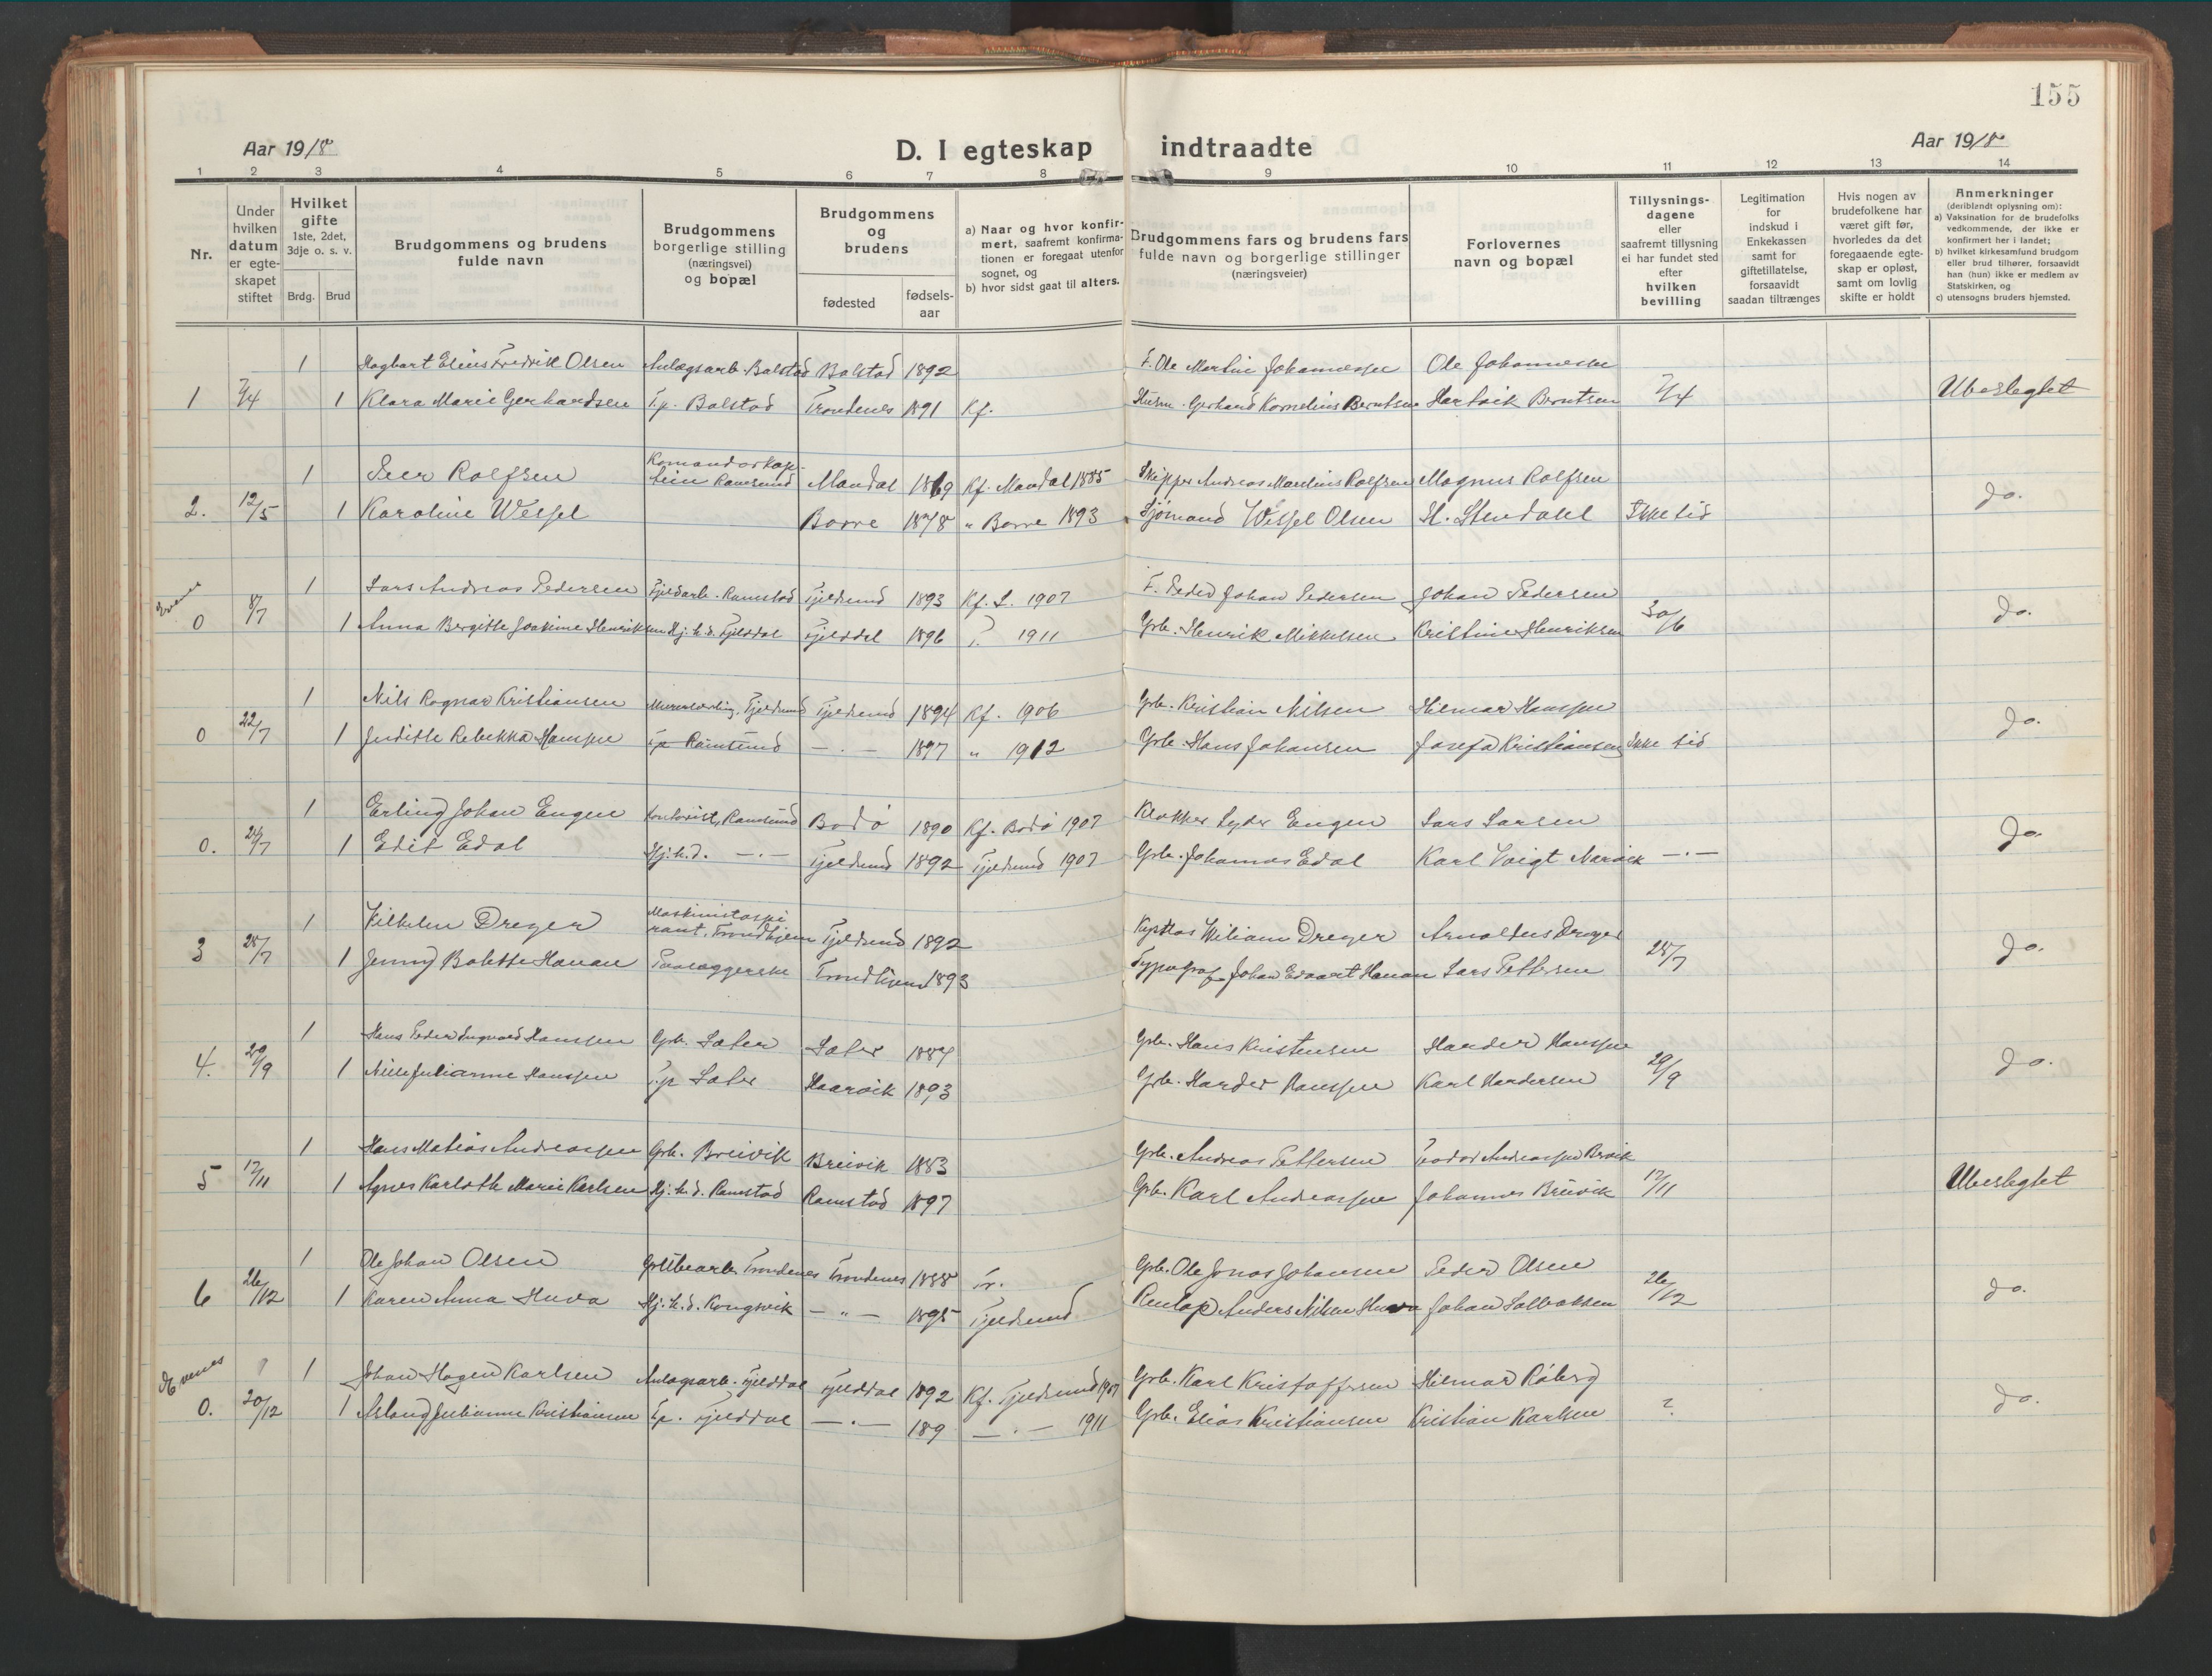 155
Aar 1918
D. I egteskap indtraadte
Aar 1918
1 2 3 4 5 6 7 8 9 10 11 12 13 14
Nr.
Under hvilken datum er egte-skapet stiftet
Hvilket gifte 1ste, 2det, 3dje o. s. v.
Brdg. Brud
Brudgommens og brudens fulde navn
Brudgommens borgerlige stilling (næringsvei) og bopæl
Brudgommens og brudens
fødested
fødsels-aar
a) Naar og hvor konfir-mert, saafremt konfirma-tionen er foregaat utenfor sognet, og
b) hvor sidst gaat til alters.
Brudgommens fars og brudens fars fulde navn og borgerlige stillinger (næringsveier)
Forlovernes navn og bopæl
Tillysnings-dagene eller saafremt tillysning ei har fundet sted efter hvilken bevilling
Legitimation for indskud i Enkekassen samt for giftetillatelse, forsaavidt saadan tiltrænges
Hvis nogen av brudefolkene har været gift før, hvorledes da det foregaaende egte-skap er opløst, samt om lovlig skifte er holdt
Anmerkninger (deriblandt oplysning om):
a) Vaksination for de brudefolks vedkommende, der ikke er konfirmert her i landet;
b) hvilket kirkesamfund brudgom eller brud tilhører, forsaavidt han (hun) ikke er medlem av Statskirken, og
c) utensogns bruders hjemsted.
1 Hagbart Elius Fredrik Olsen Anlægsarb. Balstad Balstad 1892 F. Ole Martin Johannessen Ole Johannessen
1 7/4 1 Klara Marie Gerhardsen Tp. Balstad Trondenes 1891 Kf. Husm. Gerhard Kornelius Berntsen Hartvik Berntsen 7/4 Ubeslegtet
1 Peer Rolfsen Mandal 1869 Kf. Mandal 1885 Skipper Andreas Martinius Rolfsen Magnus Rolfsen
2. 12/5 1 Karoline Wessel Borre 1878 " Borre 1893 Sjømand Wessel Olsen St. Stendahl Ikke tid do.
Evenes
1 Lars Andreas Pedersen Fjeldarb. Ramstad Fjeldsund 1893 Kf. L. 1907 F. Peder Johan Pedersen Johan Pedersen
0 8/7 1 Anna Bergitte Joakime Henriksen Hj. h. d. Fjelddal Fjelddal 1896 1911 Grb. Henrik Mikkelsen Kristine Henriksen 30/6 do.
1 Nils Ragnar Kristiansen Murerlærling. Fjeldsund Fjeldsund 1894 Kf. 1906 Grb. Kristian Nilsen Hilmar Hanssen
0 22/7 1 Juditte Rebekka Hanssen Tp Ramsund — . — 1897 " 1912 Grb. Hans Johansen Josefa Kristiansen Ikke tid do.
1 Erling Johan Engen Kontorist, Ramsund Bodø 1890 Kf. Bodø 1907 Klokker Lyder Engen Lars Larsen
0. 24/7 1 Edit Edal Hj. h. d. — . — Fjeldsund 1892 Fjeldsund 1907 Grb. Johannes Edal Karl Voigt Narvik — . — do.
1 Vilhelm Dreyer Maskinistaspirant. Trondhjem Fjeldsund 1892 William Dreyer Arnoldus Dreyer
3 28/7 1 Jenny Bolette Hanan Trondhjem 1893 Typograf Johan Edvart Hanan Lars Pettersen 28/7 do.
1 Hans Peder Ingvald Hanssen Grb. Sater Sater 1887 Grb. Hans Kristensen Harder Hanssen
4. 29/9 1 Julianne Hanssen Tp Sater Haarvik 1893 Grb. Harder Hanssen Karl Hardersen 29/9 do.
1 Hans Matias Andreassen Grb. Breivik Breivik 1883 Grb. Andreas Pettersen Andreassen
5 17/11 1 Agnes Karloth Marie Karlsen Hj. h. d. Ramstad Ramstad 1897 Grb. Karl Andreassen Johannes Breivik 17/11 Ubeslegtet
1 Ole Johan Olsen Trondenes Trondenes 1888 Tr. Grb. Ole Jonas Johansen Peder Olsen
6 26/12 1 Karen Anna Huva Hj. h. d. Kongsvik — " — 1895 Fjeldsund Anders Nilsen Huva Johan Salbakken 26/12 do.
Evenes
1 Johan Hagen Karlsen Anlægsarb. Fjelddal Fjelddal 1892 Kf. Fjeldsund 1907 Grb. Karl Kristoffersen Hilmar Råberg
0. 20/12 1 Aslaug Julianne Kristiansen Tp. Fjelddal — . — 189 — . — 1911 Grb. Elias Kristiansen Kristian Karlsen ? do.